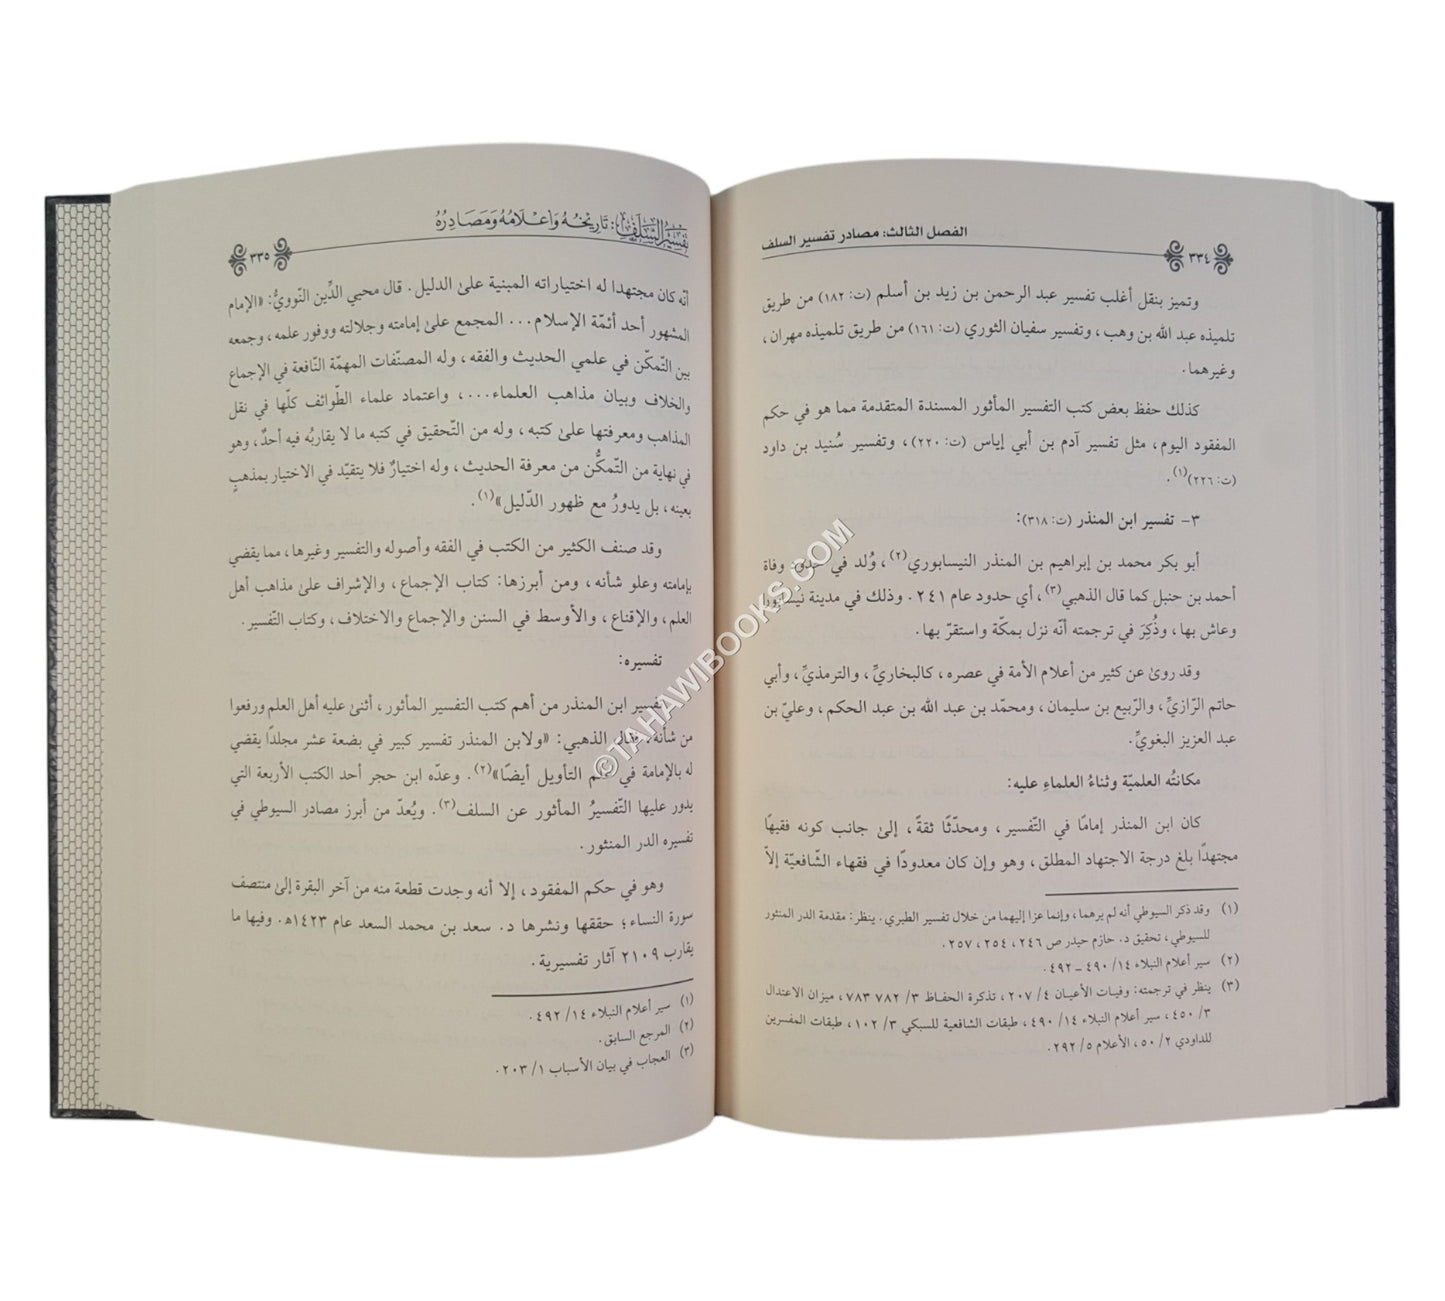 الفصل الثالث: مصادر تفسير السلف
٣٣٤
وتميز بنقل أغلب تفسير عبد الرحمن بن زيد بن أسلم (ت: ١٨٢) من طريق
تلميذه عبد الله بن وهب، وتفسير سفيان الثوري (ت: ١٦١) من طريق تلميذه مهران،
وغيرهما.
كذلك حفظ بعض كتب التفسير المأثور المسندة المتقدمة مما هو في حكم
المفقود اليوم، مثل تفسير آدم بن أبي إياس (ت: ٢٢٠)، وتفسير سُنيد بن داود
(ت: ٢٢٦)(١).
٣- تفسير ابن المنذر (ت: ٣١٨):
أبو بكر محمد بن إبراهيم بن المنذر النيسابوري(٢)، وُلد في حدود وفاة
أحمد بن حنبل كما قال الذهبي(٣)، أي حدود عام ٢٤١. وذلك في مدينة نيسابور
وعاش بها، وذُكِرَ في ترجمته أنّه نزل بمكّة واستقرّ بها.
وقد روىٰ عن كثير من أعلام الأمة في عصره، كالبخاريِّ، والترمذيِّ، وأبي
حاتم الرّازيِّ، والرّبيع بن سليمان، ومحمّد بن عبد الله بن عبد الحكم، وعليّ بن
عبد العزيز البغويِّ.
مكانتُه العلميّة وثناءُ العلماءِ عليه:
كان ابن المنذر إمامًا في التّفسير، ومحدّثًا ثقةً، إلىٰ جانب كونه فقيهًا
مجتهدًا بلغ درجة الاجتهاد المطلق، وهو وإن كان معدودًا في فقهاء الشّافعيّة إلاّ
(١) وقد ذكر السيوطي أنه لم يرهما، وإنما عزا إليهما من خلال تفسير الطبري. ينظر: مقدمة الدر المنثور
للسيوطي، تحقيق د. حازم حيدر ص ٢٤٦، ٢٥٤، ٢٥٧.
(٢) سير أعلام النبلاء ١٤/ ٤٩٠ ـ ٤٩٢.
(٣) ينظر في ترجمته: وفيات الأعيان ٤/ ٢٠٧، تذكرة الحفاظ ٣/ ٧٨٢ ٧٨٣، ميزان الاعتدال
٣/ ٤٥٠، سير أعلام النبلاء ١٤/ ٤٩٠، طبقات الشافعية للسبكي ٣/ ١٠٢، طبقات المفسرين
للداودي ٢/ ٥٠، الأعلام ٥/ ٢٩٢.
تفسير السلف: تاريخه وأعلامه ومصادره
٣٣٥
أنّه كان مجتهدا له اختياراته المبنية علىٰ الدليل. قال محيي الدِّين النّوويُّ: «الإمام
المشهور أحد أئمّة الإسلام... المجمع علىٰ إمامته وجلالته ووفور علمه، وجمعه
بين التّمكّن في علمي الحديث والفقه، وله المصنّفات المهمّة النّافعة في الإجماع
والخلاف وبيان مذاهب العلماء...، واعتماد علماء الطّوائف كلّها في نقل
المذاهب ومعرفتها علىٰ كتبه، وله من التّحقيق في كتبه ما لا يقاربُه فيه أحدٌ، وهو
في نهاية من التّمكُّن من معرفة الحديث، وله اختيارٌ فلا يتقيّد في الاختيار بمذهبٍ
بعينه، بل يدورُ مع ظهور الدّليل»(١).
وقد صنف الكثير من الكتب في الفقه وأصوله والتفسير وغيرها، مما يقضي
بإمامته وعلو شأنه، ومن أبرزها: كتاب الإجماع، والإشراف علىٰ مذاهب أهل
العلم، والإقناع، والأوسط في السنن والإجماع والاختلاف، وكتاب التّفسير.
تفسيره:
تفسير ابن المنذر من أهم كتب التفسير المأثور، أثنىٰ عليه أهل العلم ورفعوا
من شأنه، فقال الذهبي: «ولابن المنذر تفسير كبير في بضعة عشر مجلدًا يقضي
له بالإمامة في علم التأويل أيضًا»(٢). وعدّه ابن حجر أحد الكتب الأربعة التي
يدور عليها التّفسيرُ المأثور عن السلف(٣). ويُعدّ من أبرز مصادر السيوطي في
تفسيره الدر المنثور.
وهو في حكم المفقود، إلا أنه وجدت قطعة منه من آخر البقرة إلىٰ منتصف
سورة النساء؛ حققها ونشرها د. سعد بن محمد السعد عام ١٤٢٣ه. وفيها ما
يقارب ٢١٠٩ آثار تفسيرية.
(١) سير أعلام النبلاء ١٤/ ٤٩٢.
(٢) المرجع السابق.
(٣) العجاب في بيان الأسباب ١/ ٢٠٣.
©TAHAWIBOOKS.COM